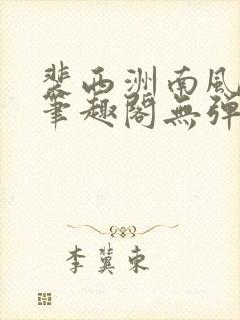 裴西洲南风
筆趣閣無彈
李冀東